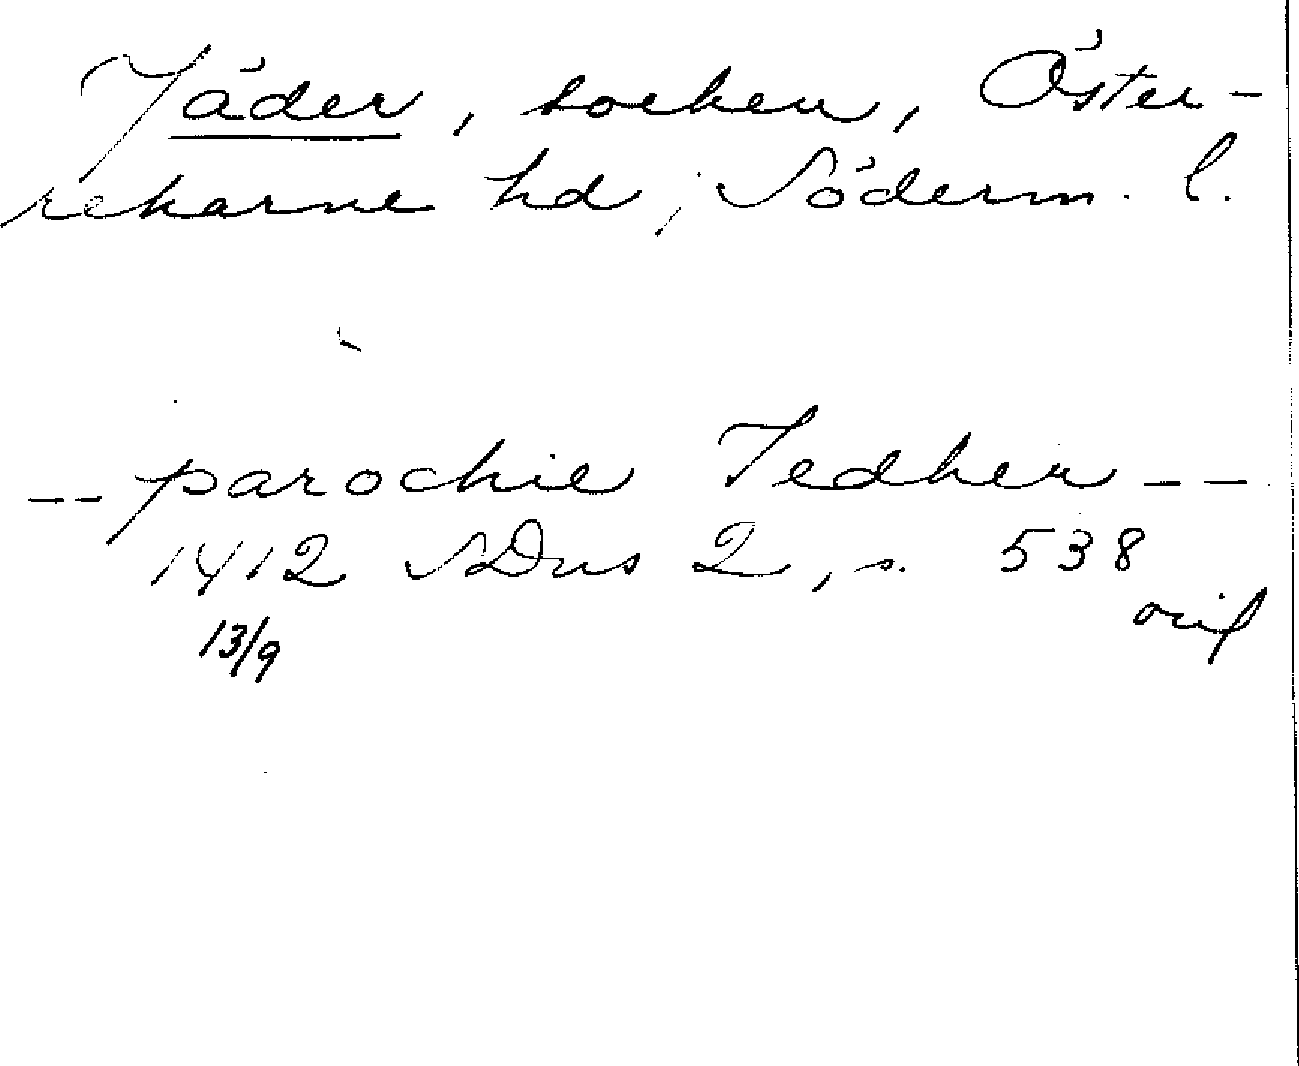 Jäder, socken, Öster-
rekarne hd, Söderm. l.
-- parochie Jedher --
1412 SDns 2, s. 538
13/9 orig